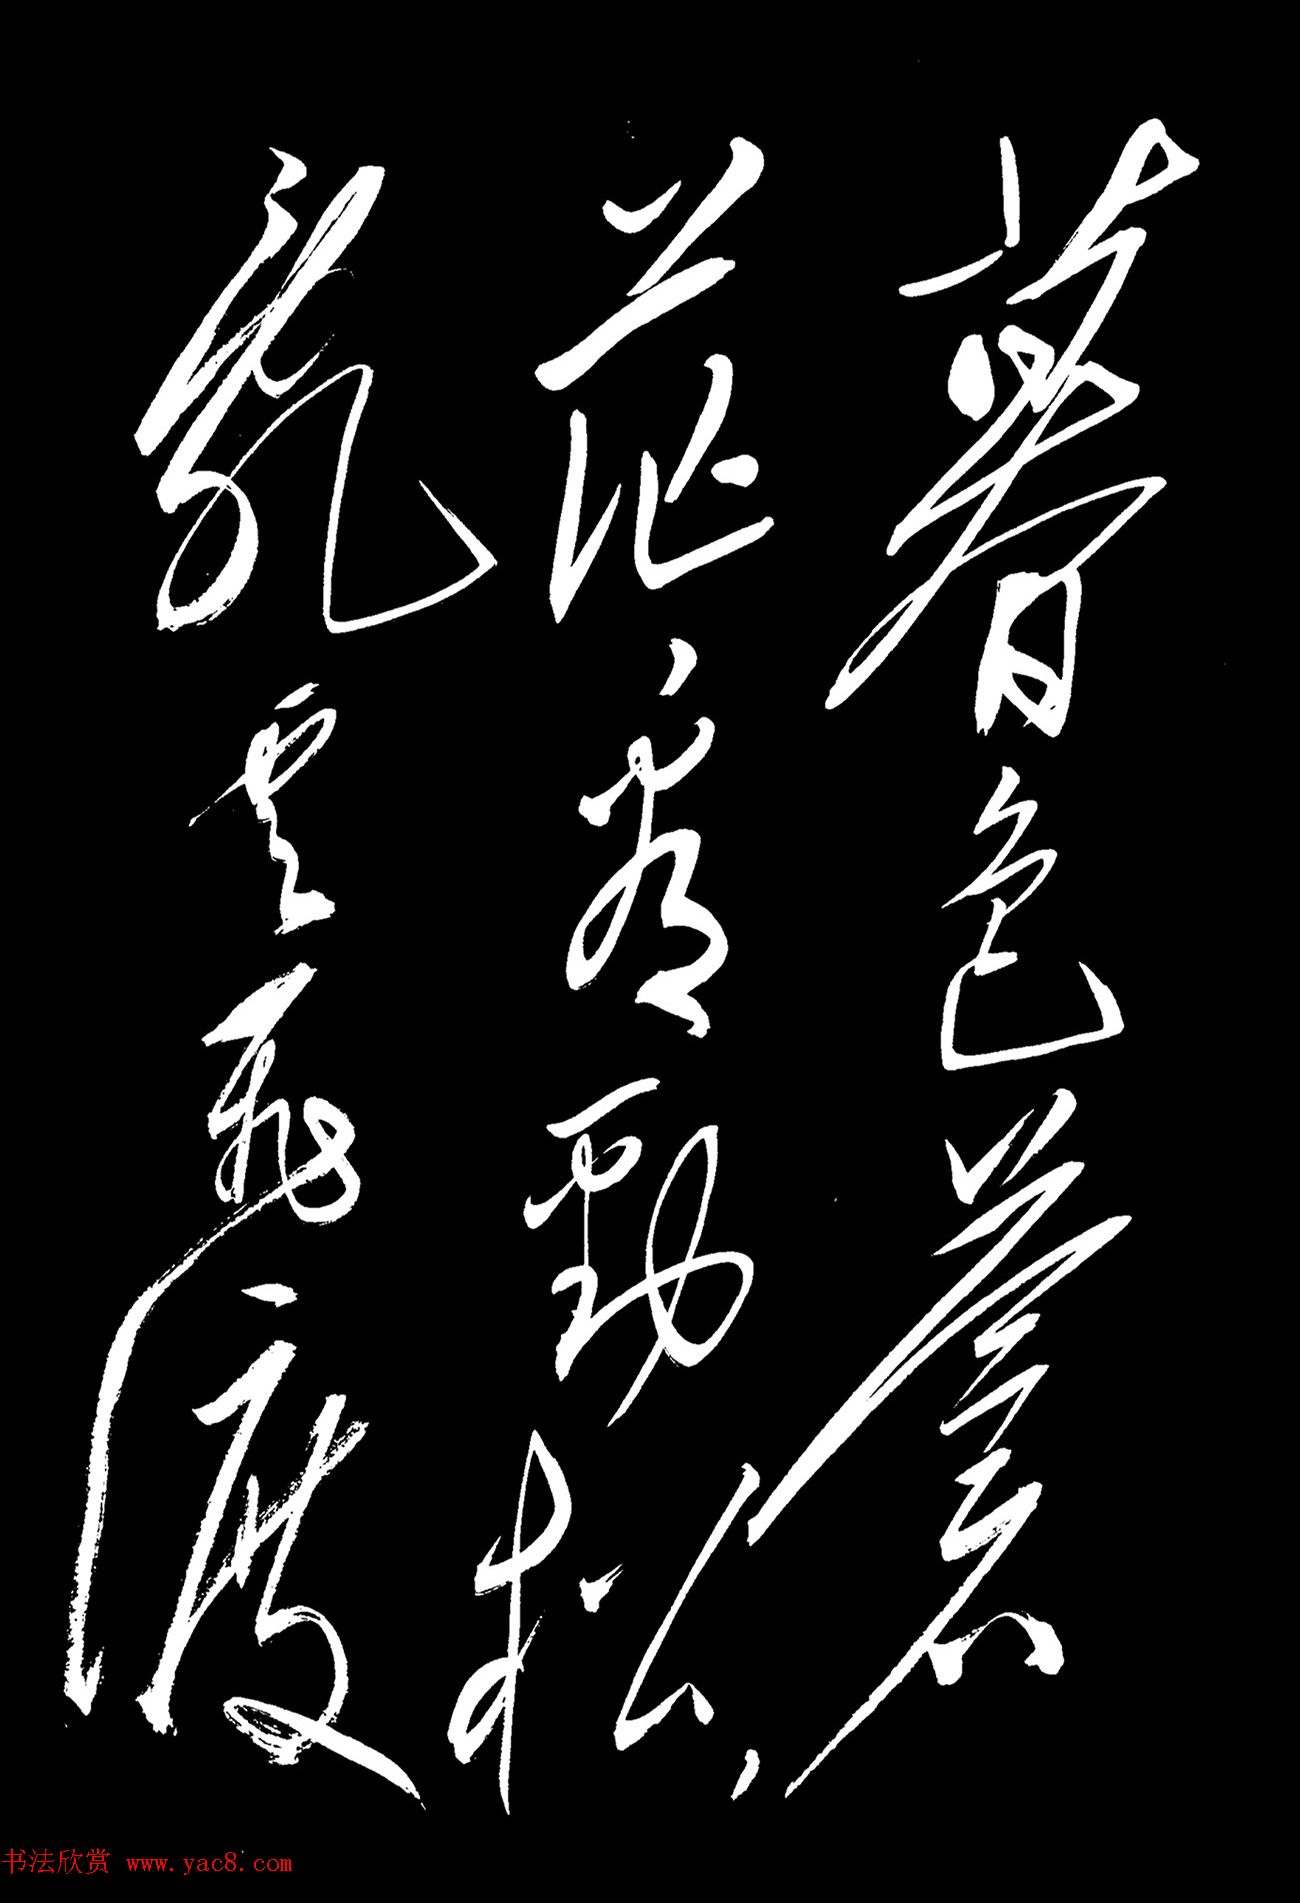 暮色蒼
茫看勁松
亂雲飛渡
书法欣赏 www.yac8.com